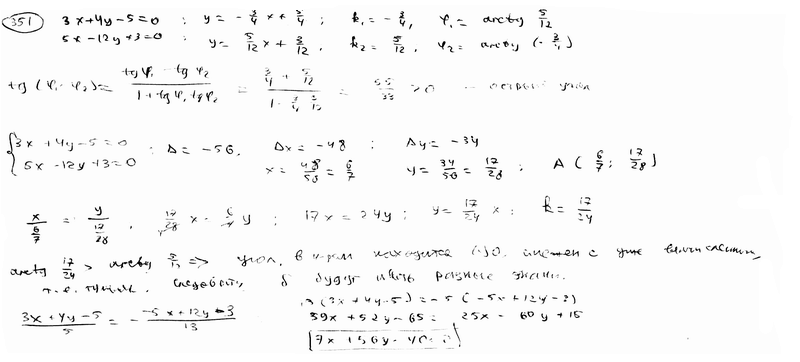 351 3x+4y-5=0 : y = -3/4 x + 5/4 ; k₁ = -3/4, φ₁ = arctg 5/12
5x-12y+3=0 : y = 5/12 x + 3/12 , k₂ = 5/12, φ₂ = arctg (-3/4)
tg(φ₁-φ₂) = (tgφ₁-tgφ₂)/(1+tgφ₁tgφ₂) = (3/4 + 5/12)/(1 - 3/4 5/12) = 55/33 >0 - острый угол
{3x+4y-5=0 5x-12y+3=0 : Δ = -56, Δx = -48 ; Δy = -34
x = 48/56 = 6/7 y = 34/56 = 17/28 ; A (6/7 ; 17/28)
x/(6/7) = y/(17/28) , 17/28 x = 6/7 y ; 17x = 24y ; y = 17/24 x ; k = 17/24
arctg 17/24 > arctg 5/12 => угол, в находится смежен с уже
т.е. тупым. δ будут иметь разные знаки.
(3x+4y-5)/5 = - (-5x+12y-3)/13 13(3x+4y-5) = -5(-5x+12y-3)
39x+52y-65 = 25x-60y+15
7x+56y-40=0